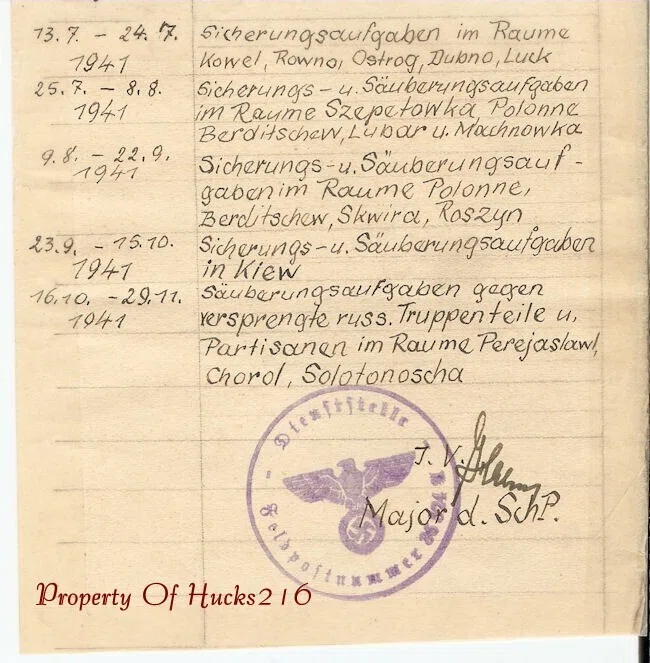 13.7. – 24.7. Sicherungsaufgaben im Raume
1941 Kowel, Rowno, Ostrog, Dubno, Luck
25.7. – 8.8. Sicherungs- u. Säuberungsaufgaben
1941 im Raume Szepetowka, Polonne
Berditschew, Lubar u. Machnowka
9.8. – 22.9. Sicherungs-u. Säuberungsauf-
1941 gaben im Raume Polonne,
Berditschew, Skwira, Roszyn
23.9. – 15.10. Sicherungs-u. Säuberungsaufgaben
1941 in Kiew
16.10. – 29.11. Säuberungsaufgaben gegen
1941 versprengte russ. Truppenteile u.
Partisanen im Raume Perejaslawl,
Chorol, Solotonoscha
– Dienststelle
Feldpostnummer
J. V.
Major d. SchP.
Property Of Hucks216